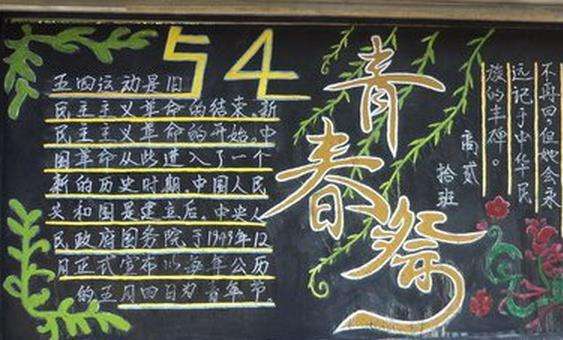 54
五四运动是旧
民主主义革命的结束，新
民主主义革命的开始。中
国革命从此进入了一个
新的历史时期。中国人民
共和国是建立后，中央人
民政府国务院于1949年12
月正式宣布以每年公历
的五月四日为青年节。
青春祭
不再回，但她会永
远记于中华民
族的丰碑。
高贰
拾班